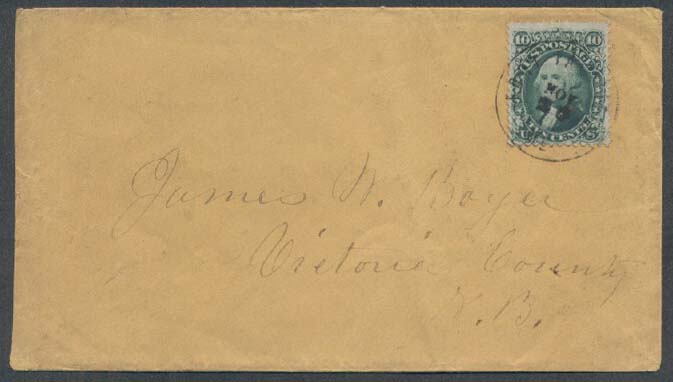 10 U.S. POSTAGE 10
TEN CENTS
NOV
James W. Boyer
Victoria County
N.B.